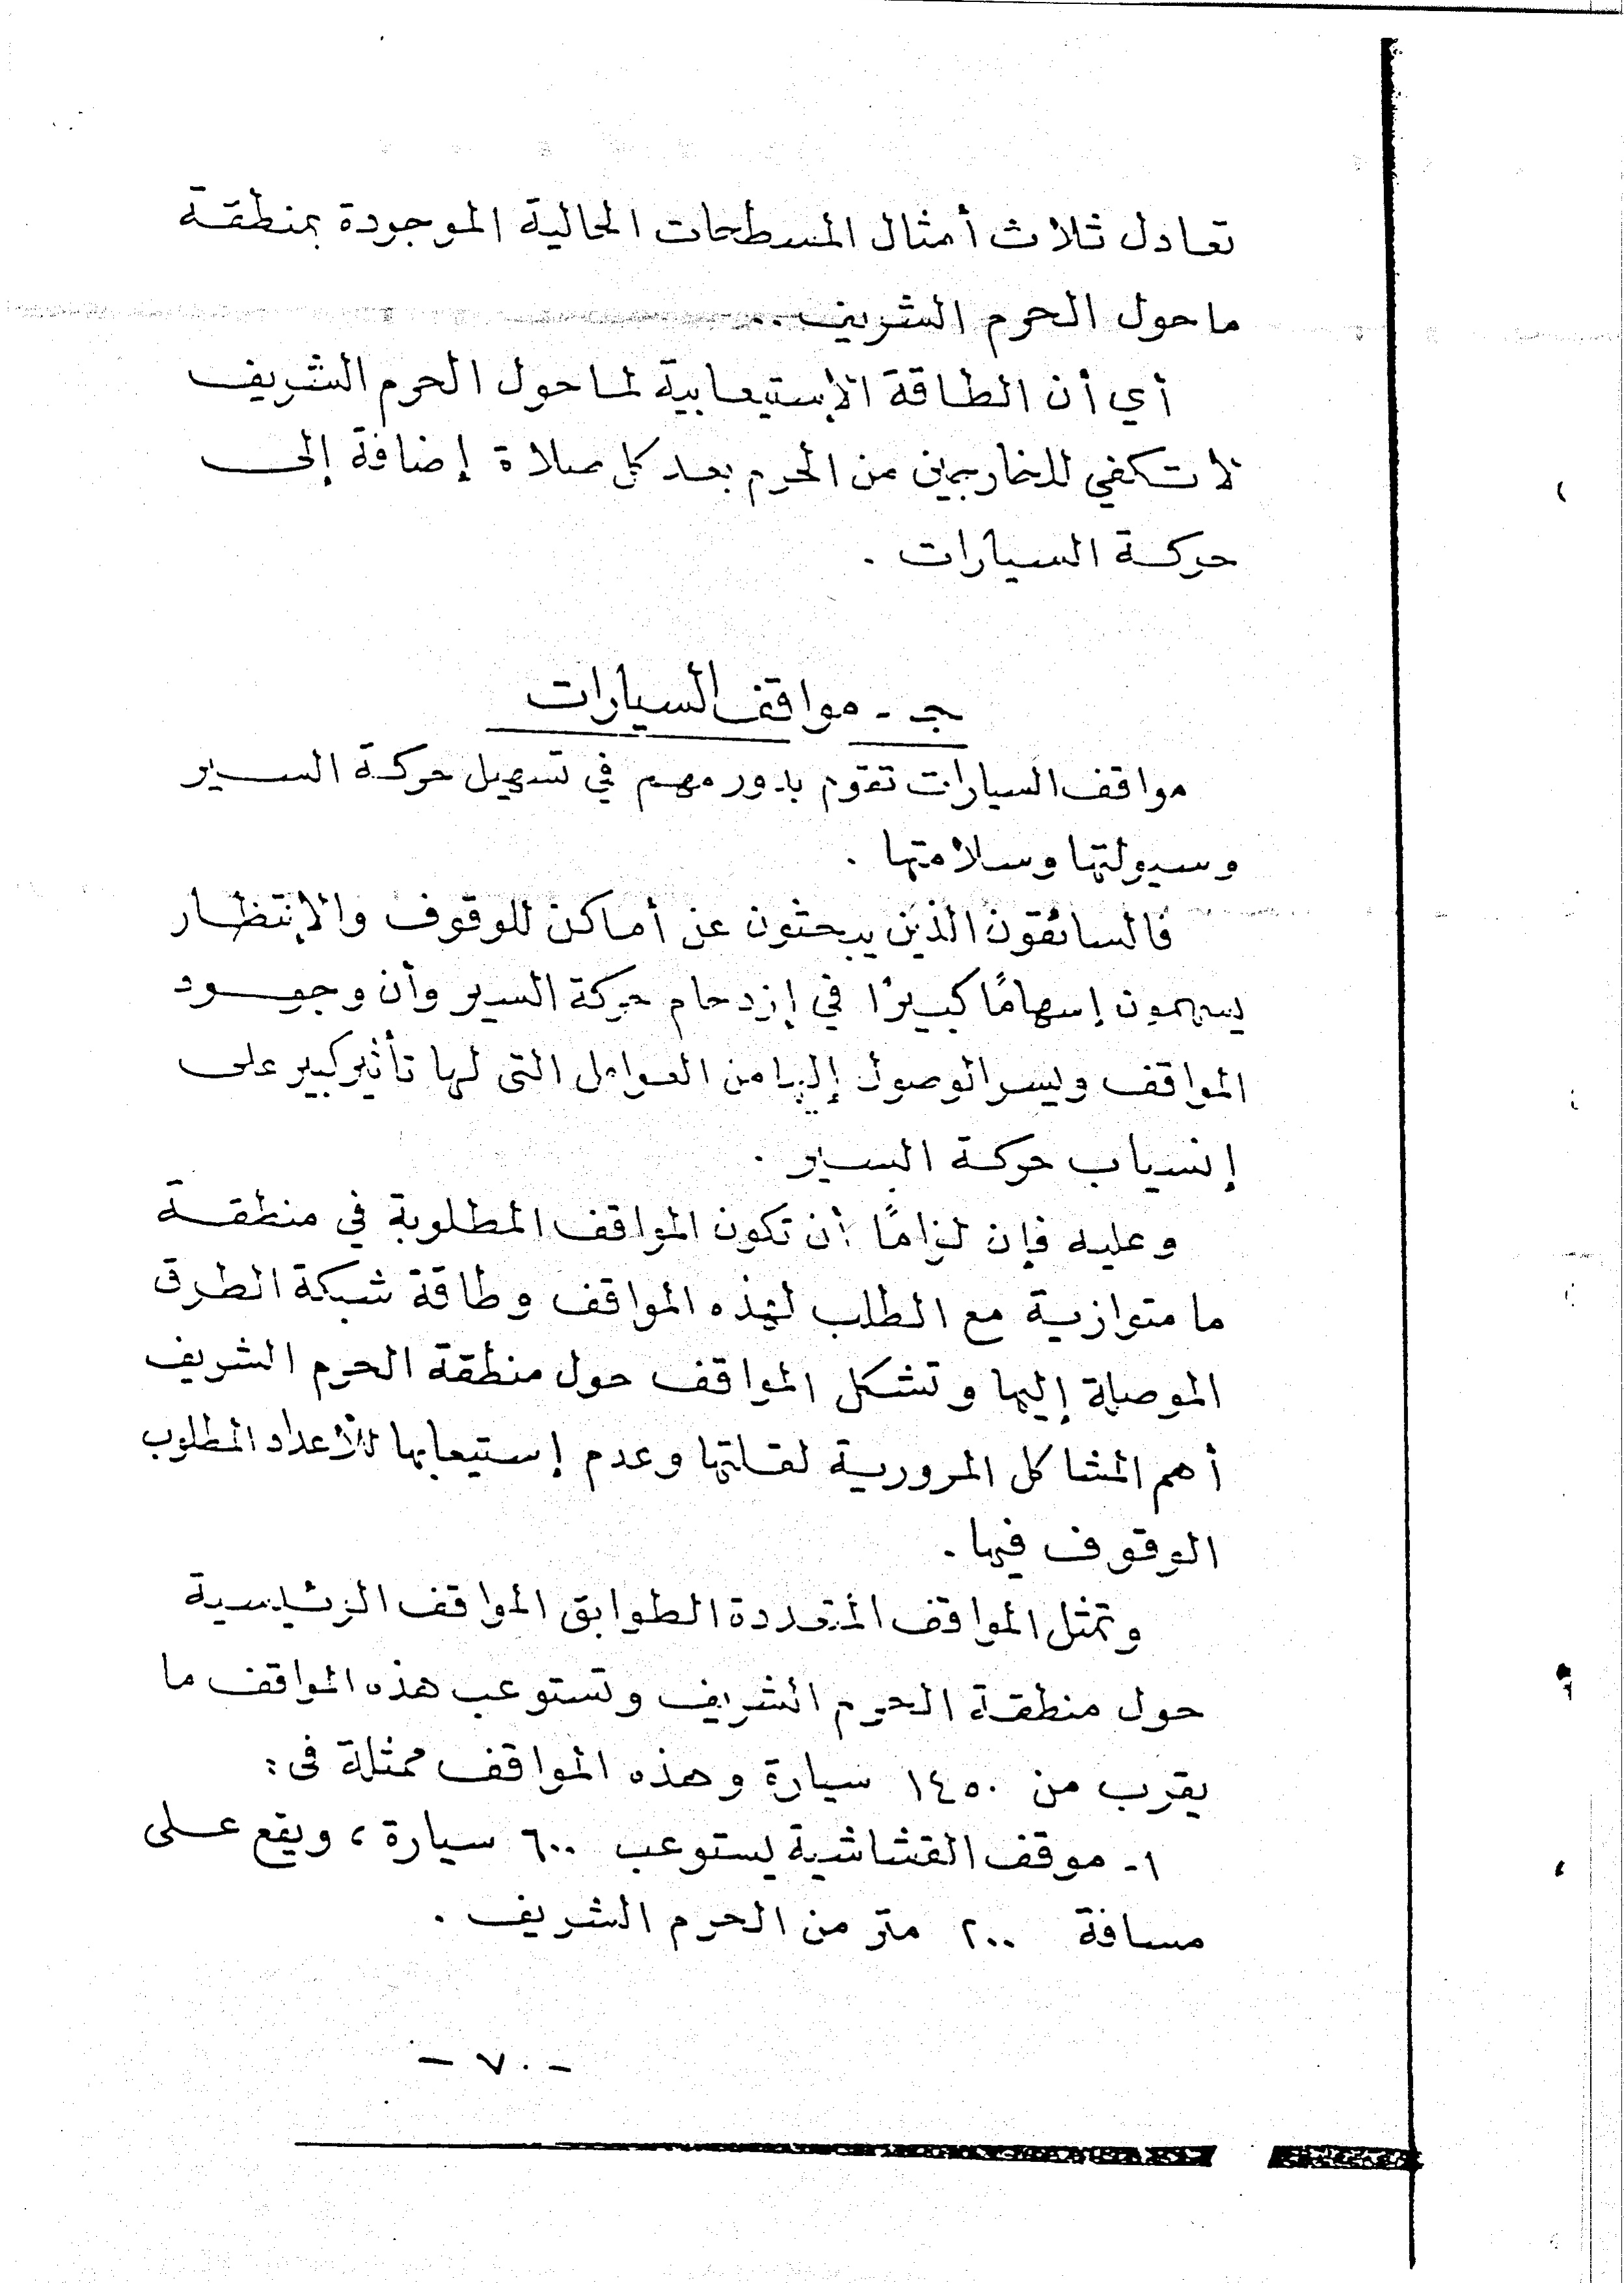 تعادل ثلاث أمثال المسطحات الحالية الموجودة بمنطقة
ما حول الحرم الشريف ..
أي أن الطاقة الإستيعابية لما حول الحرم الشريف
لا تكفي للخارجين من الحرم بعد كل صلاة إضافة إلى
حركة السيارات .
جـ - مواقف السيارات
مواقف السيارات تقوم بدور مهم في تسهيل حركة السير
وسيولتها وسلامتها .
فالسائقون الذين يبحثون عن أماكن للوقوف والإنتظار
يسهمون إسهامًا كبيرًا في إزدحام حركة السير وأن وجود
المواقف ويسر الوصول إليها من العوامل التى لها تأثير كبير على
إنسياب حركة السير .
وعليه فإن لزامًا أن تكون المواقف المطلوبة في منطقة
ما متوازية مع الطلب لهذه المواقف وطاقة شبكة الطرق
الموصلة إليها وتشكل المواقف حول منطقة الحرم الشريف
أهم المشاكل المرورية لقلتها وعدم إستيعابها للأعداد المطلوب
الوقوف فيها .
وتمثل المواقف المتعددة الطوابق المواقف الرئيسية
حول منطقة الحرم الشريف وتستوعب هذه المواقف ما
يقرب من ١٤٥٠ سيارة وهذه المواقف ممثلة فى :
١- موقف القشاشية يستوعب ٦٠٠ سيارة ، ويقع على
مسافة ٢٠٠ متر من الحرم الشريف .
- ٧٠ -